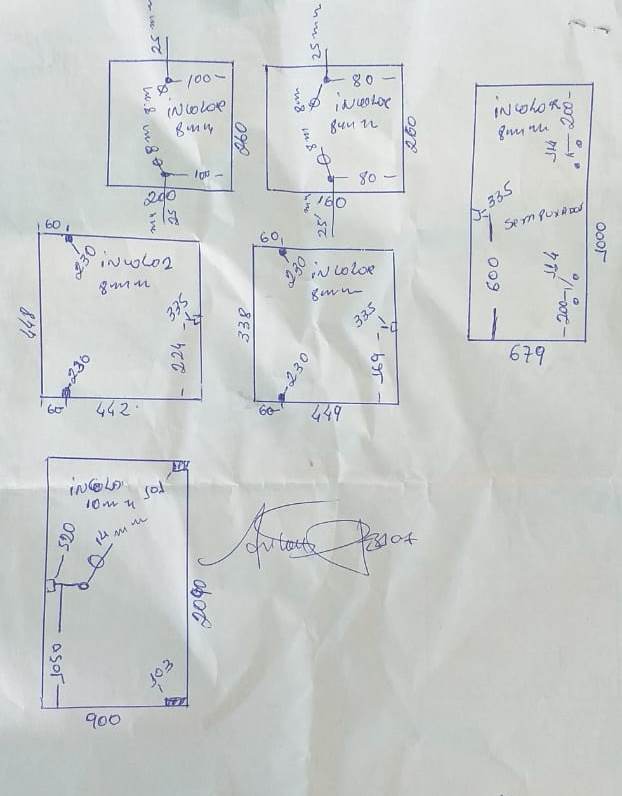 25 mm
100
8 m
incolor
8mm
8 m
100
260
200
25
mm
25 mm
80
8 m
incolor
8mm
8 m
80
260
160
25
mm
incolor
8mm
200
114
335
sem puxador
600
114
200
1000
679
60
230
incolor
8mm
335
448
230
224
60
442
60
230
incolor
8mm
335
338
230
169
60
449
incolor
10mm
101
520
14 mm
2090
1050
103
900